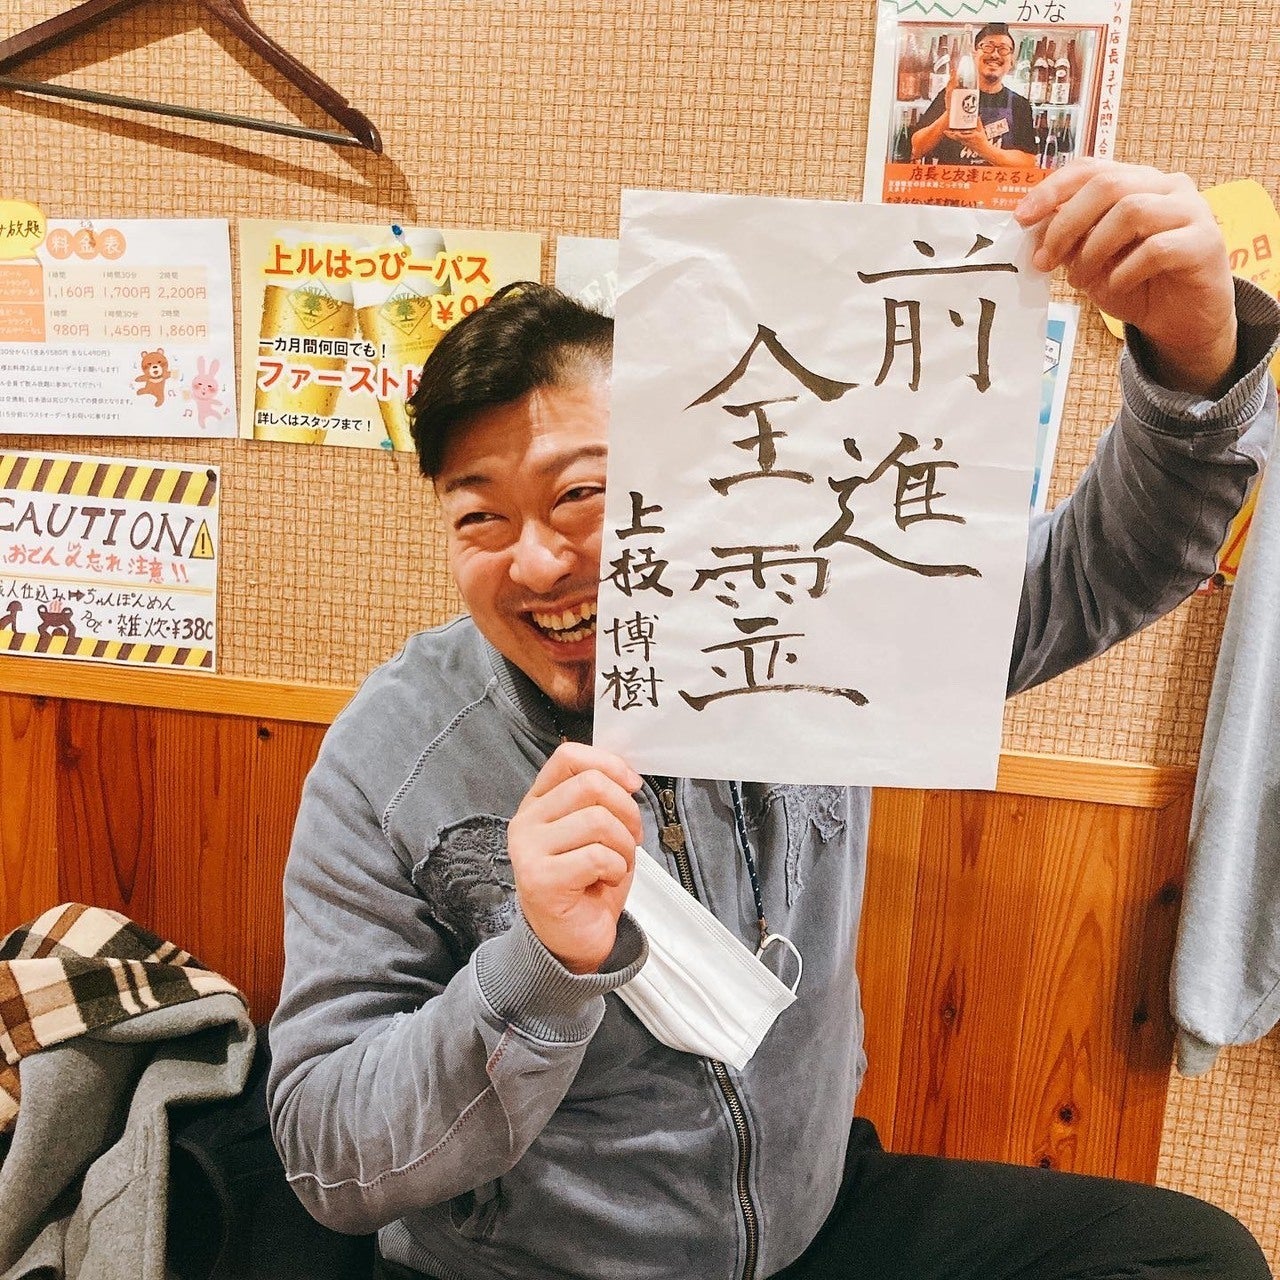 前進
全霊
上枝博樹
かな
りの店長までお問い合
店長と友達になると!
放題
料金表
1時間 1時間30分 2時間
1,160円 1,700円 2,200円
980円 1,450円 1,860円
上ルはっぴーパス
一カ月間何回でも!
ファーストド
詳しくはスタッフまで!
CAUTION
おでん〆忘れ注意!!
人仕込み➡ちゃんぽんめん
・雑炊・¥380
の日